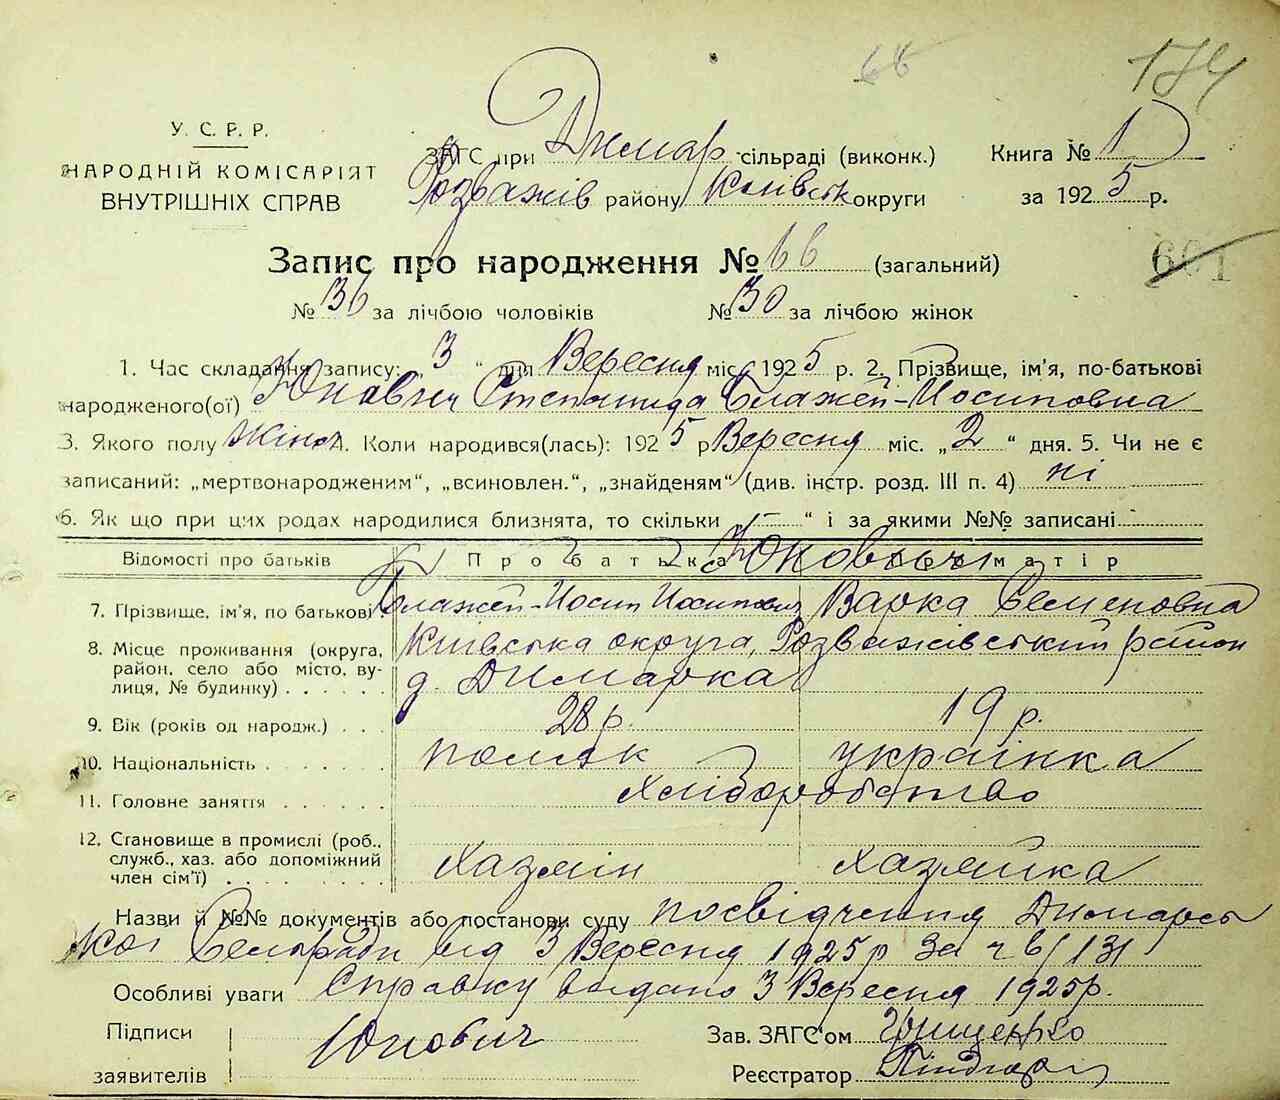 174
У. С. Р. Р.
НАРОДНІЙ КОМІСАРІЯТ
ВНУТРІШНІХ СПРАВ
ЗАГС при Димар сільраді (виконк.) Книга № 1
Розважів району Київськ округи за 1925 р.
Запис про народження № 66 (загальний)
601
№ 36 за лічбою чоловіків № 30 за лічбою жінок
1. Час складання запису: „3“ дня Вересня міс. 1925 р. 2. Прізвище, ім'я, по-батькові
народженого(ої) Степанида Блажей-Иосиповна
3. Якого полу жіноч. 4. Коли народився(лась): 1925 р Вересня міс. „2“ дня. 5. Чи не є
записаний: „мертвонародженим“, „всиновлен.“, „знайденям“ (див. інстр. розд. III п. 4) ні
6. Як що при цих родах народилися близнята, то скільки „—“ і за якими №№ записані
Відомості про батьків Про батька Про матір
7. Прізвище, ім'я, по батькові Блажей-Иосип Иосипович Варка Семеновна
8. Місце проживання (округа, район, село або місто, вулиця, № будинку) Київська округа, Розважівський район
д. Димарка
9. Вік (років од народж.) 28 р. 19 р.
10. Національність поляк українка
11. Головне заняття хліборобство
12. Становище в промислі (роб., служб., хаз. або допоміжний член сім'ї) хазяін хазяйка
Назви й №№ документів або постанови суду посвідчення Димарсь
коі Сельради від 3 Вересня 1925 р за ч 6/131
Особливі уваги Справку видано 3 Вересня 1925 р.
Підписи Юнович Зав. ЗАГС'ом Грищенко
заявителів Реєстратор